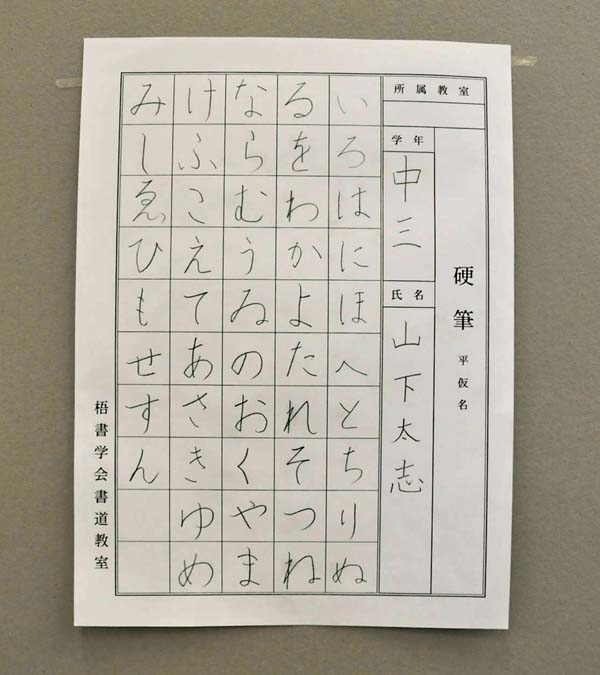 硬筆 平仮名
所属教室
学年
中三
氏名
山下太志
いろはにほへとちりぬ
るをわかよたれそつね
ならむうゐのおくやま
けふこえてあさきゆめ
みしゑひもせすん
梧書学会書道教室